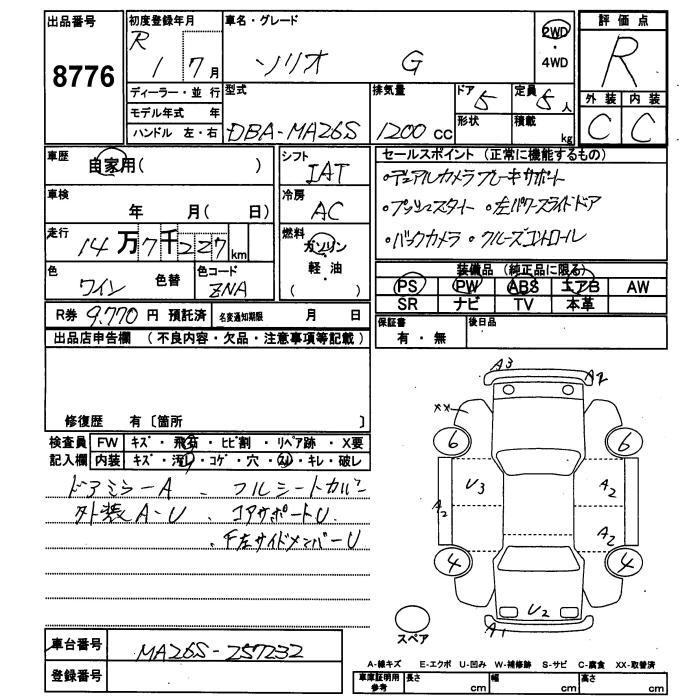 出品番号
8776
初度登録年月
R 1 7月
ディーラー・並 行
モデル年式 年
ハンドル 左・右
車名・グレード
ソリオ G
2WD
・
4WD
評 価 点
R
外 装 内 装
C C
型式
DBA-MA26S
排気量
1200 cc
ドア 5
形状
定員 5 人
積載 kg
車歴 自家用( )
車検
年 月( 日)
走行
14万7千227km
色
ワイン 色替
色コード
ZNA
シフト
IAT
冷房
AC
燃料
ガソリン
・
軽・油
( )
セールスポイント (正常に機能するもの)
・デュアルカメラブレーキサポート
・プッシュスタート ・左パワースライドドア
・バックカメラ ・クルーズコントロール
装備品 (純正品に限る)
PS PW ABS エアB AW
SR ナビ TV 本革
R券 9,770 円 預託済 名変通知期限 月 日
保証書
有・無
後日品
出品店申告欄 (不良内容・欠品・注意事項等記載)
修復歴 有〔箇所 〕
検査員 FW キズ・飛石・ヒビ割・リペア跡・X要
記入欄 内装 キズ・汚れ・コゲ・穴・スレ・キレ・破レ
ドアミラーA 、フルシートカバー
外装A-U 、コアサポートU
、F左サイドメンバーU
A3
A2
XX
6
6
U3
A2
A2
A2
4
4
U2
A1
スペア
車台番号 MA26S-257232
登録番号
A-線キズ E-エクボ U-凹み W-補修跡 S-サビ C-腐食 XX-取替済
車庫証明用
参考
長さ cm 幅 cm 高さ cm